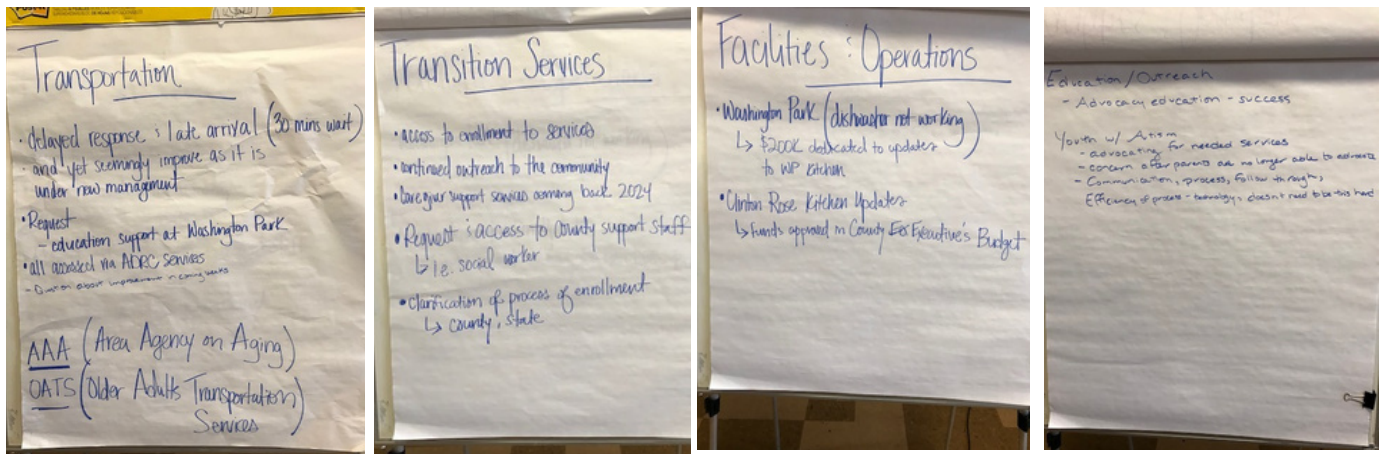 Transportation
• delayed response & late arrival (30 mins wait)
- and yet seemingly improve as it is
under new management
• Request
- education support at Washington Park
• all accessed via ADRC services
- about improvement in coming weeks
AAA (Area Agency on Aging)
OATS (Older Adults Transportation
Services)
Transition Services
• access to enrollment to services
• continued outreach to the community
• Caregiver support services coming back 2024
• Request & access to County support staff
↳ i.e. social worker
• Clarification of process of enrollment
↳ county, state
Facilities & Operations
• Washington Park (dishwasher not working)
↳ $200K dedicated to updates
to WP Kitchen
• Clinton Rose Kitchen Updates
↳ Funds approved in County Executive's Budget
Education/Outreach
- Advocacy education - success
Youth w/ Autism
- advocating for needed services
- concern after parents are no longer able to advocate
- Communication, process, follow through,
Efficiency of process - technology, doesn't need to be this hard